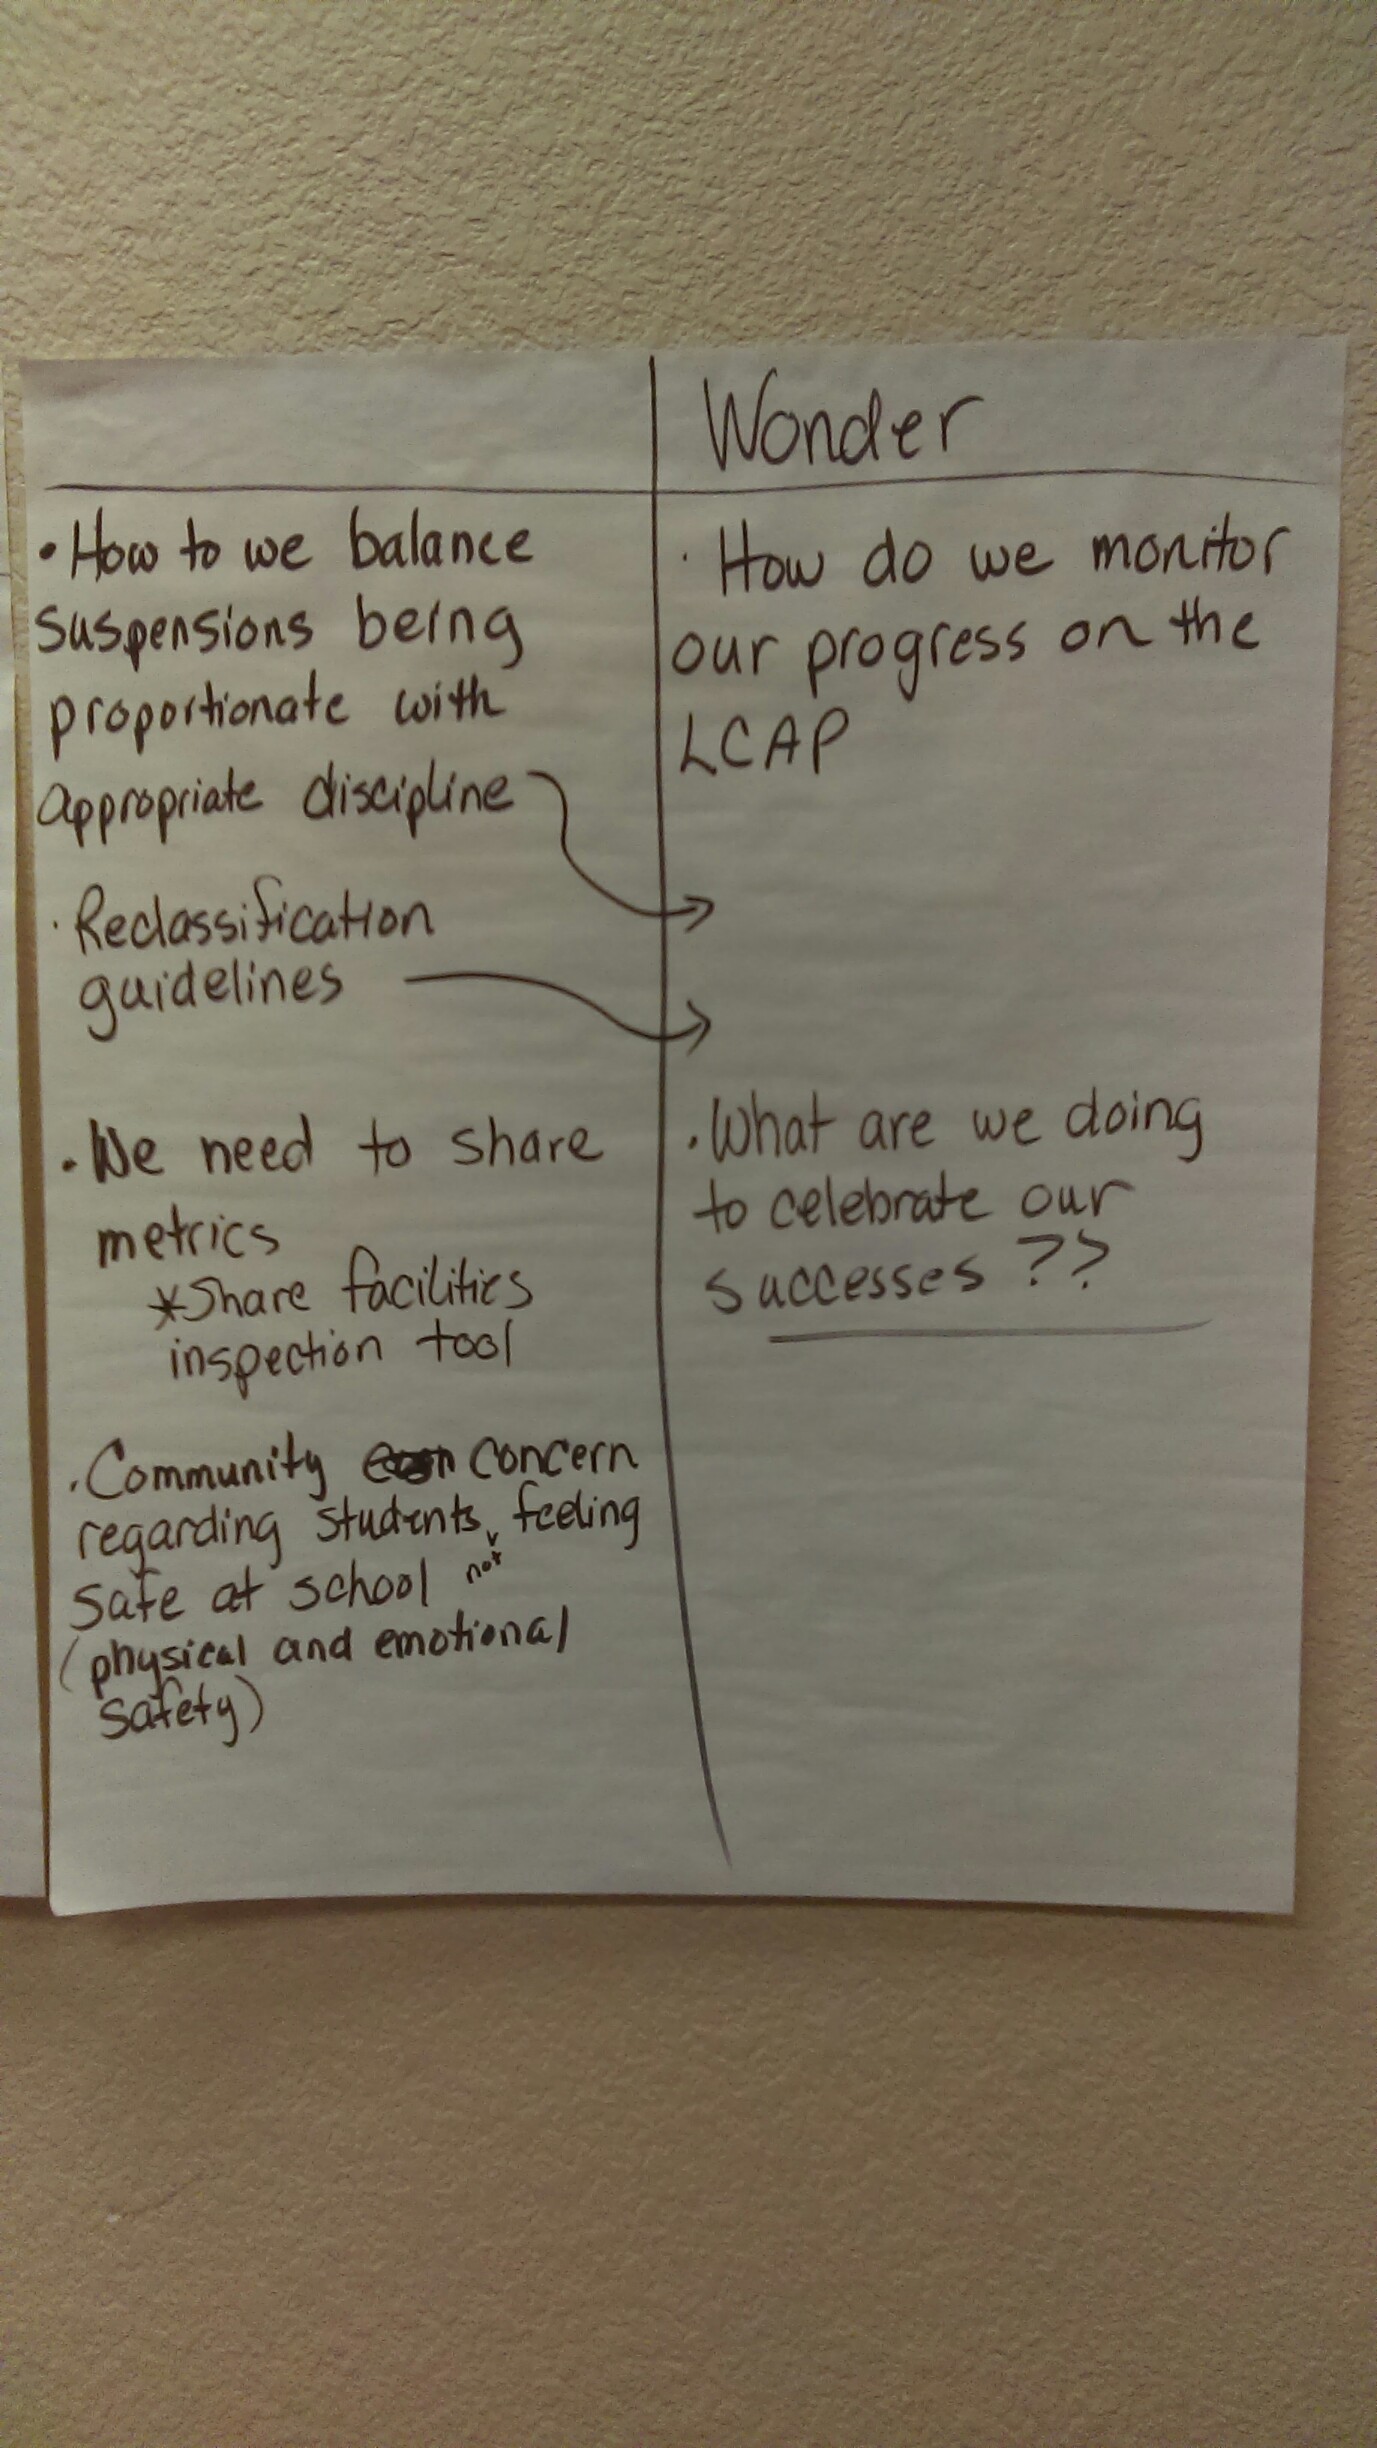 Wonder
• How to we balance
suspensions being
proportionate with
appropriate discipline
• Reclassification
guidelines
• We need to share
metrics
*Share facilities
inspection tool
• Community concern
regarding students not feeling
safe at school
(physical and emotional
safety)
• How do we monitor
our progress on the
LCAP
• What are we doing
to celebrate our
successes ??